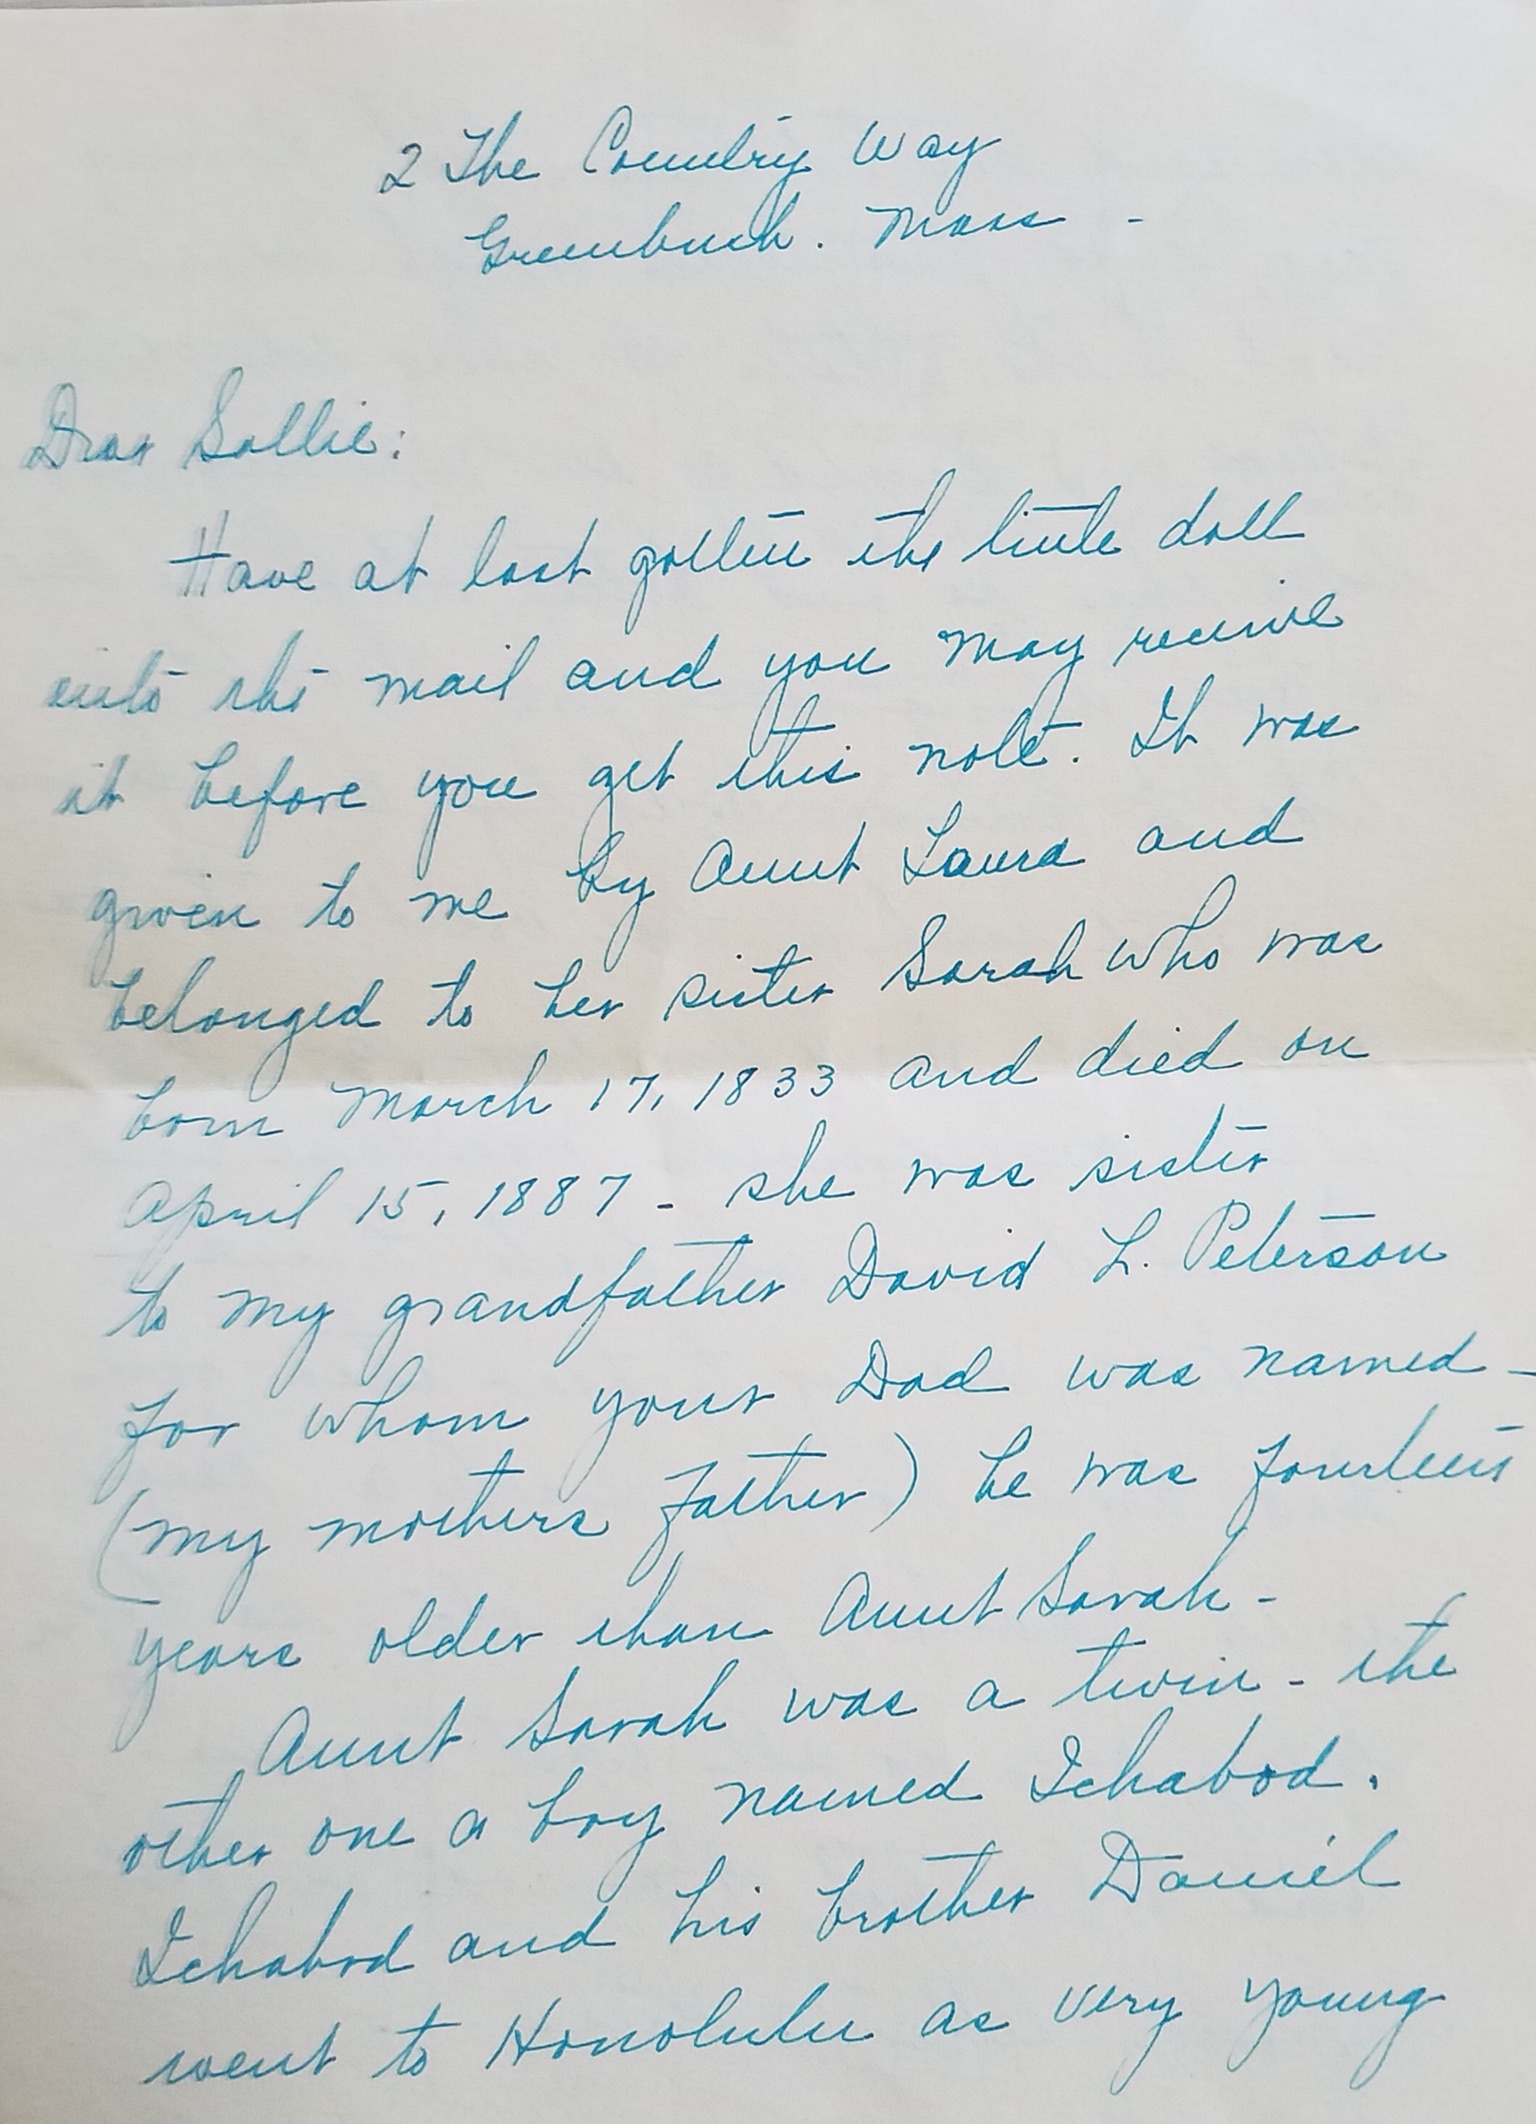 2 The Country Way
Greenbush. Mass -
Dear Sallie:
Have at last gotten the little doll
into the mail and you may receive
it before you get this note. It was
given to me by Aunt Laura and
belonged to her sister Sarah who was
born March 17, 1833 and died on
April 15, 1887 - she was sister
to my grandfather David L. Peterson
for whom your Dad was named -
(my mothers father) he was fourteen
years older than Aunt Sarah -
Aunt Sarah was a twin - the
other one a boy named Ichabod.
Ichabod and his brother Daniel
went to Honolulu as very young